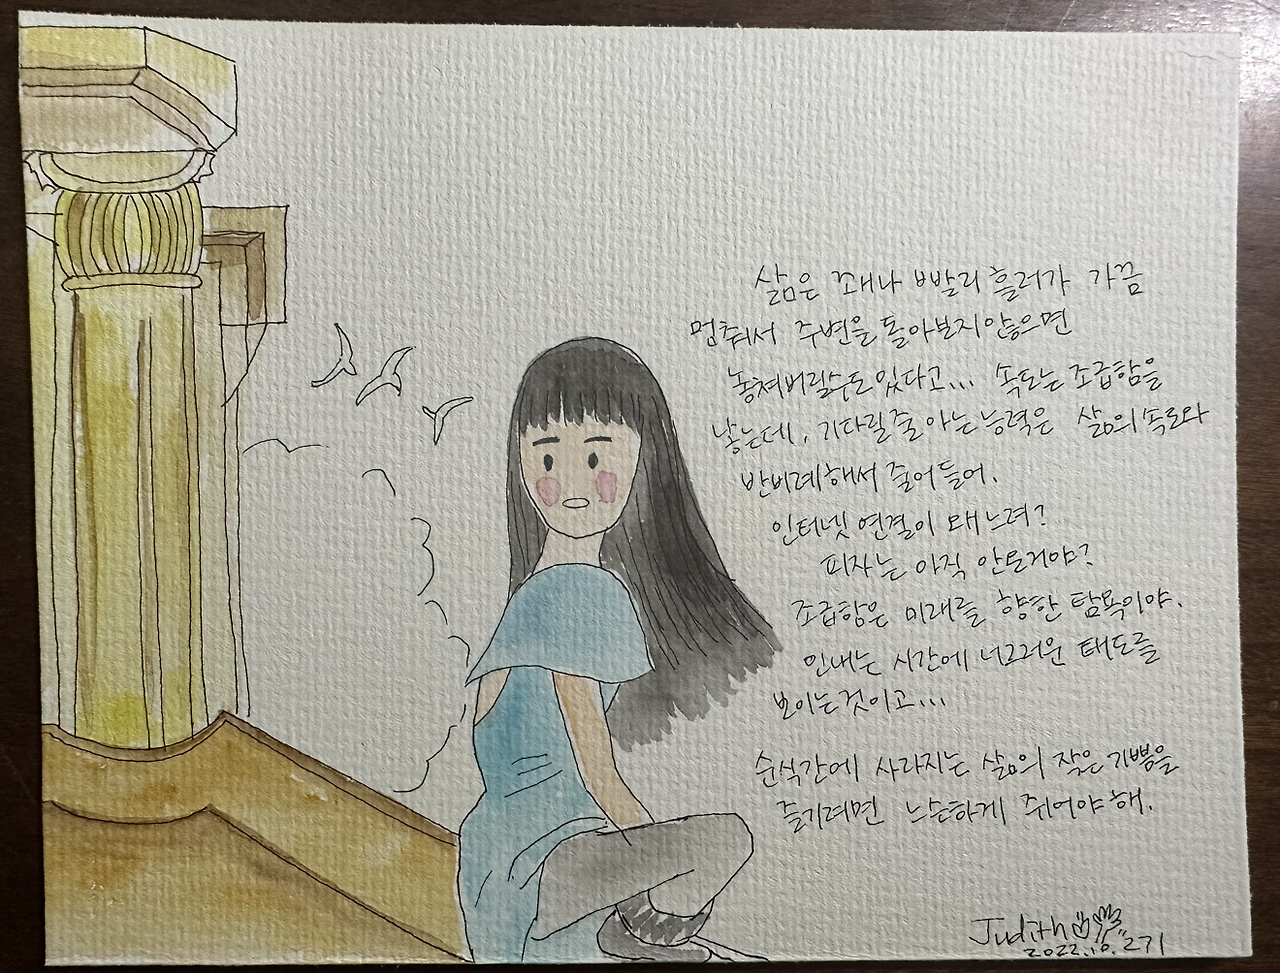 삶은 꽤나 빨리 흘러가 가끔
멈춰서 주변을 돌아보지않으면
놓쳐버릴수도 있다고... 속도는 조급함을
낳는데, 기다릴줄 아는 능력은 삶의 속도와
반비례해서 줄어들어.
인터넷 연결이 왜 느려?
피자는 아직 안온거야?
조급함은 미래를 향한 탐욕이야.
인내는 시간에 너그러운 태도를
보이는것이고...
순식간에 사라지는 삶의 작은 기쁨을
즐기려면 느슨하게 쥐어야 해.
Judith
2022.10.271